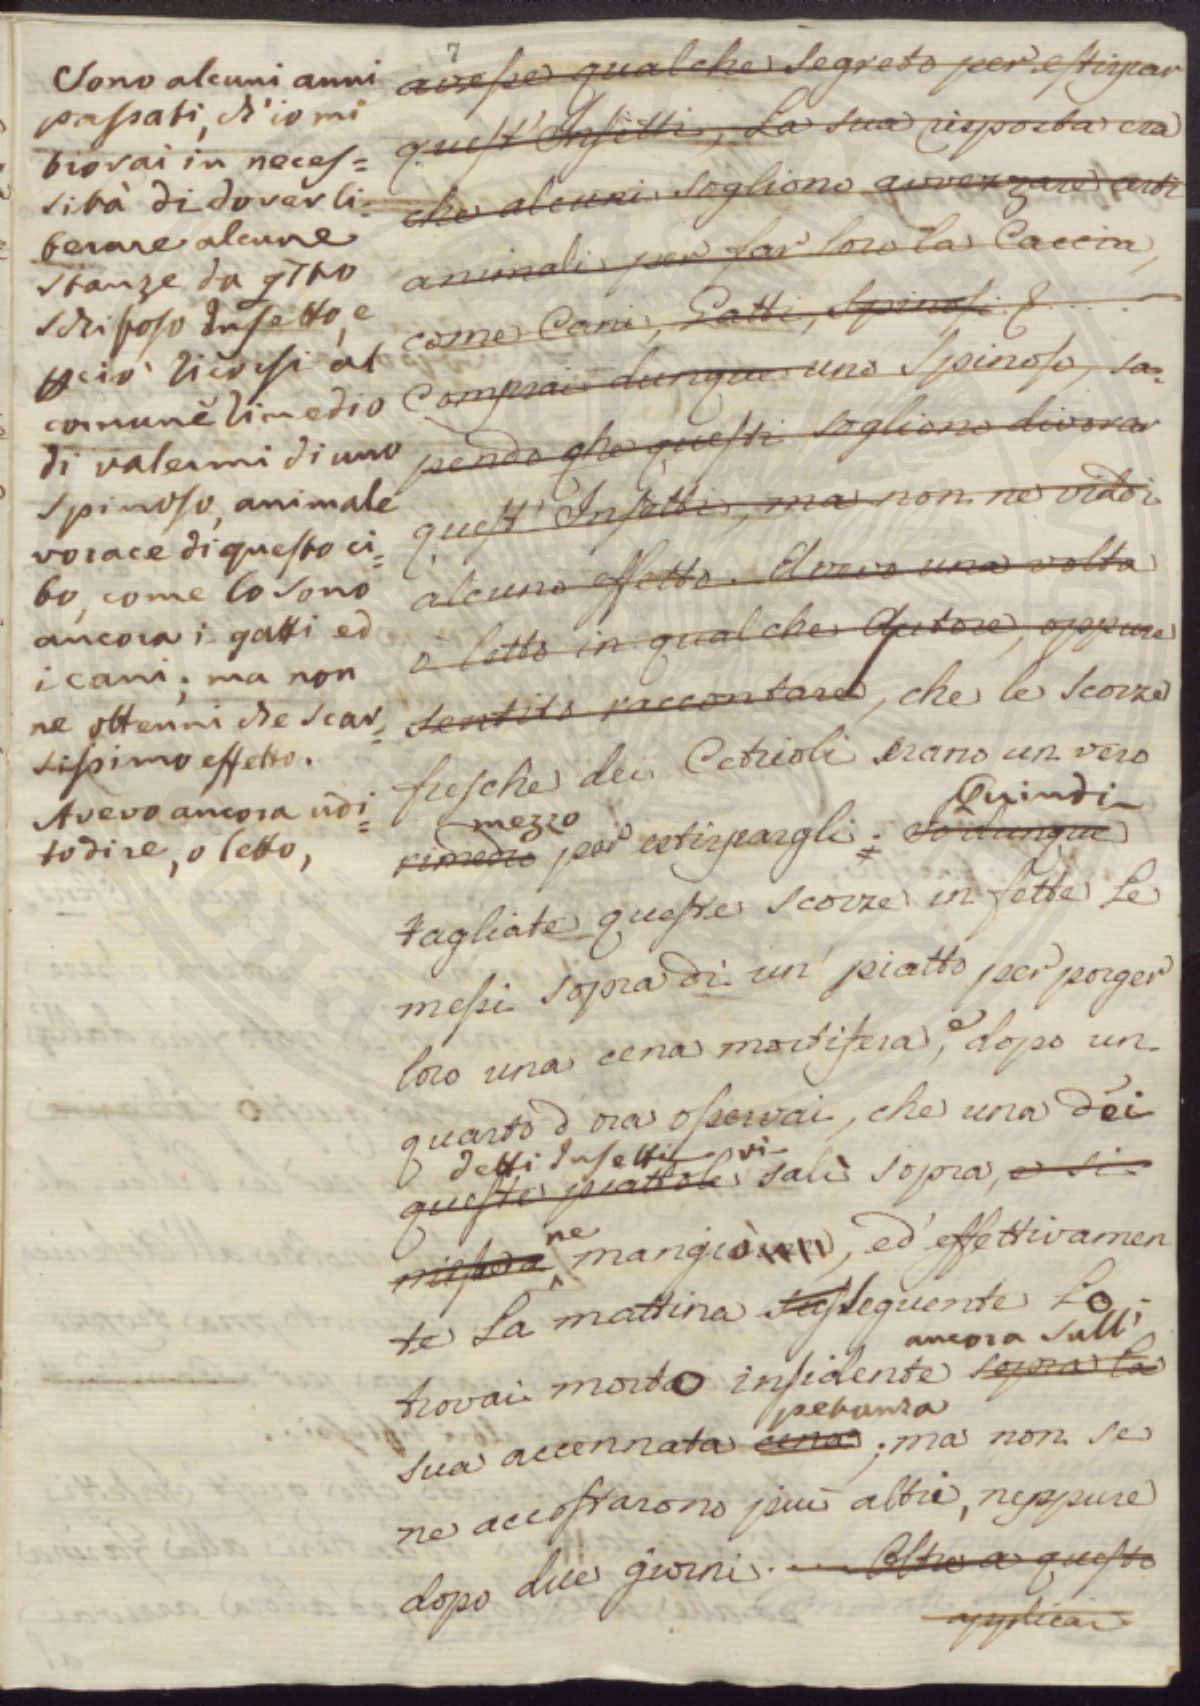 7
Sono alcuni anni
passati, ch'io mi
trovai in neces=
sità di dover li=
berare alcune
stanze da qsto
schifoso Insetto, e
pciò ricorsi al
comune rimedio
di valermi di uno
spinoso, animale
vorace di questo ci=
bo, come lo sono
ancora i gatti ed
i cani; ma non
ne ottenni che scar=
sissimo effetto.
Avevo ancora udi=
to dire, o letto,
avesse qualche segreto per estirpar
quest' Insetti, La sua risposta era
che alcuni sogliono avvezzare certi
animali per far loro la Caccia,
come Cani, Gatti, Spinosi &
Comprai dunque uno Spinoso, sa=
pendo che questi sogliono divorar
quest' Insetti, ma non ne viddi
alcuno effetto. Avevo una volta
o letto in qualche Autore, oppure
sentito raccontare, che le scorze
fresche dei Cetrioli erano un vero
mezzo Quindi
rimedio per estirpargli: Io dunque
tagliate queste scorze in fette Le
messi sopra di un' piatto per porger
loro una cena mortifera, e dopo un
quarto d'ora osservai, che una dei
detti Insetti vi
queste piattole salì sopra, e si
ne
messe a mangiò, ed effettivamen
te La mattina susseguente Lo
ancora sull'
trovai morto insidente sopra la
petanza
sua accennata cena; ma non se
ne accostarono più altri, neppure
dopo due giorni. Oltre a questo
applicai